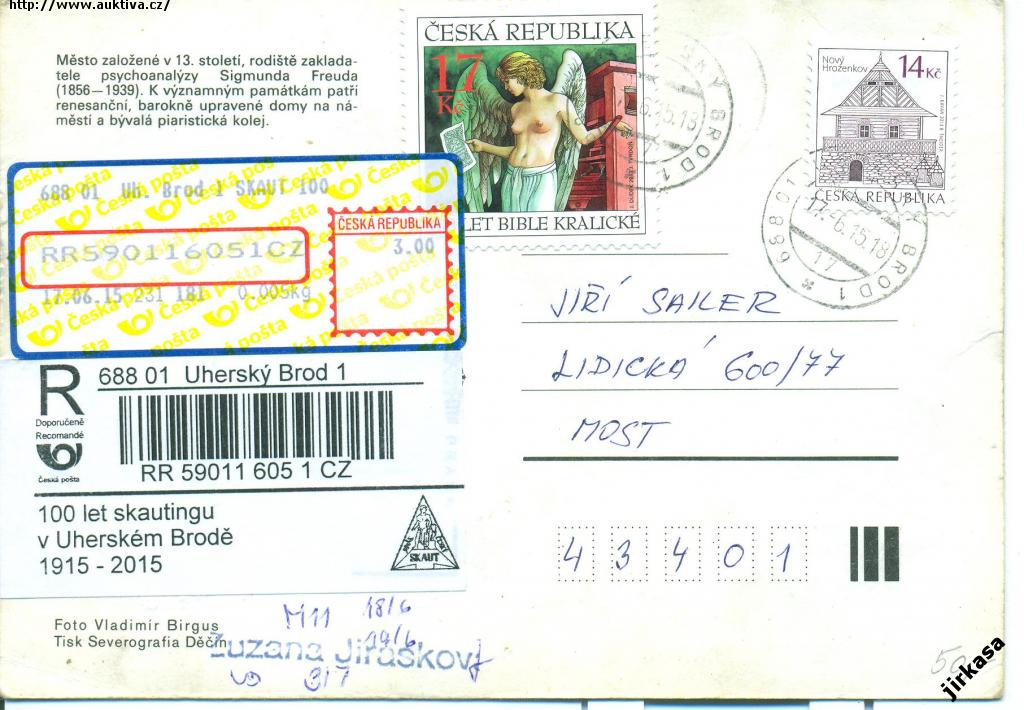 http://www.auktiva.cz/
Město založené v 13. století, rodiště zaklada-
tele psychoanalýzy Sigmunda Freuda
(1856—1939). K významným památkám patří
renesanční, barokně upravené domy na ná-
městí a bývalá piaristická kolej.
ČESKÁ REPUBLIKA
17
Kč
LET BIBLE KRALICKÉ
Nový
Hrozenkov
14 Kč
ČESKÁ REPUBLIKA
SKÝ BROD 1
6.15.18
688 01 BROD 1
17.-6.15.18
17
688 01 Uh. Brod 1 SKAUT 100
ČESKÁ REPUBLIKA
3.00
RR590116051CZ
17.06.15 231 181 0.005kg
Česká pošta
R
Doporučeně
Recomandé
Česká pošta
688 01 Uherský Brod 1
RR 59011 605 1 CZ
100 let skautingu
v Uherském Brodě
1915 - 2015
SKAUT
JIŘÍ SAILER
LIDICKÁ 600/77
MOST
43401
Foto Vladimír Birgus
Tisk Severografia Děčín
M11 18/6
19/6
Zuzana Jirásková
317
50
jirkasa